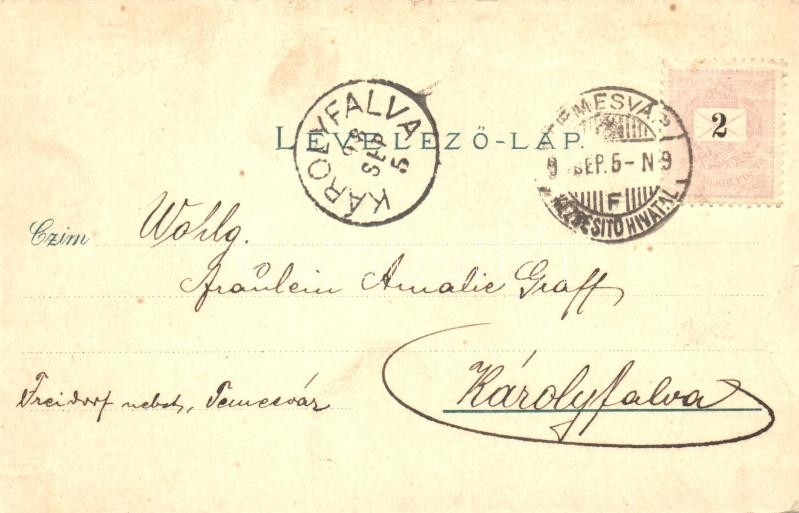 LEVELEZŐ-LAP.
KÁROLYFALVA
SEP
5
TEMESVÁR
9 SEP. 5 - N 9
F
KÉZBESITŐ HIVATAL
2
Czim
Wohlg.
Fräulein Amalie Graff
Károlyfalva
Freidorf nebst, Temesvár